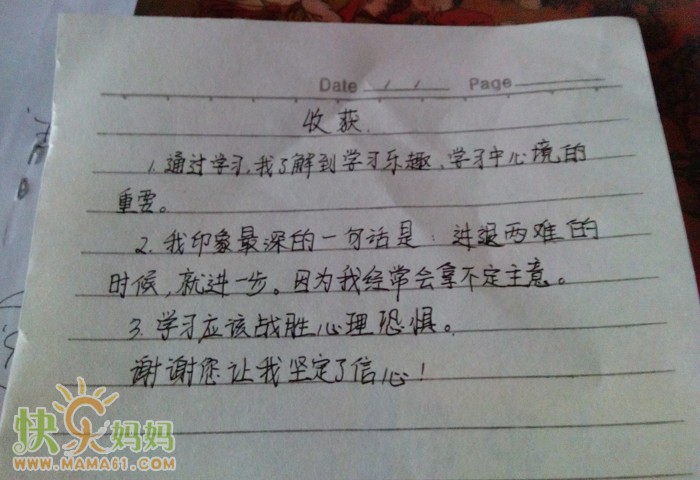 Date / / Page
收获.
1. 通过学习,我了解到学习乐趣、学习中心境的
重要。
2. 我印象最深的一句话是:进退两难的
时候,就进一步。因为我经常会拿不定主意。
3. 学习应该战胜心理恐惧。
谢谢您让我坚定了信心!
快乐妈妈
WWW.MAMA61.COM